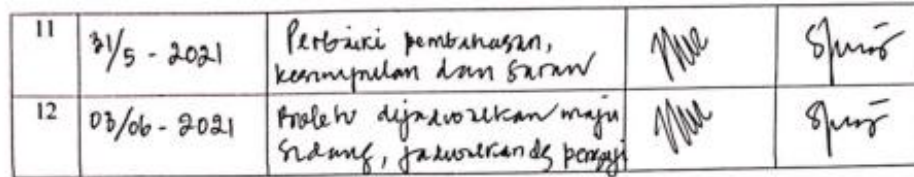 11 31/5 - 2021 Perbaiki pembahasan,
kesimpulan dan saran
12 03/06 - 2021 Boleh dijadwalkan maju
sidang, jadwalkan dg penguji